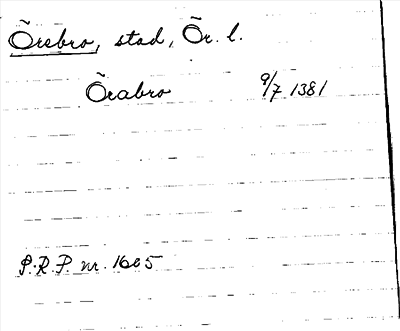 Örebro, stad, Ör. l.
Örabro 9/7 1381
P.R.P. nr. 1605